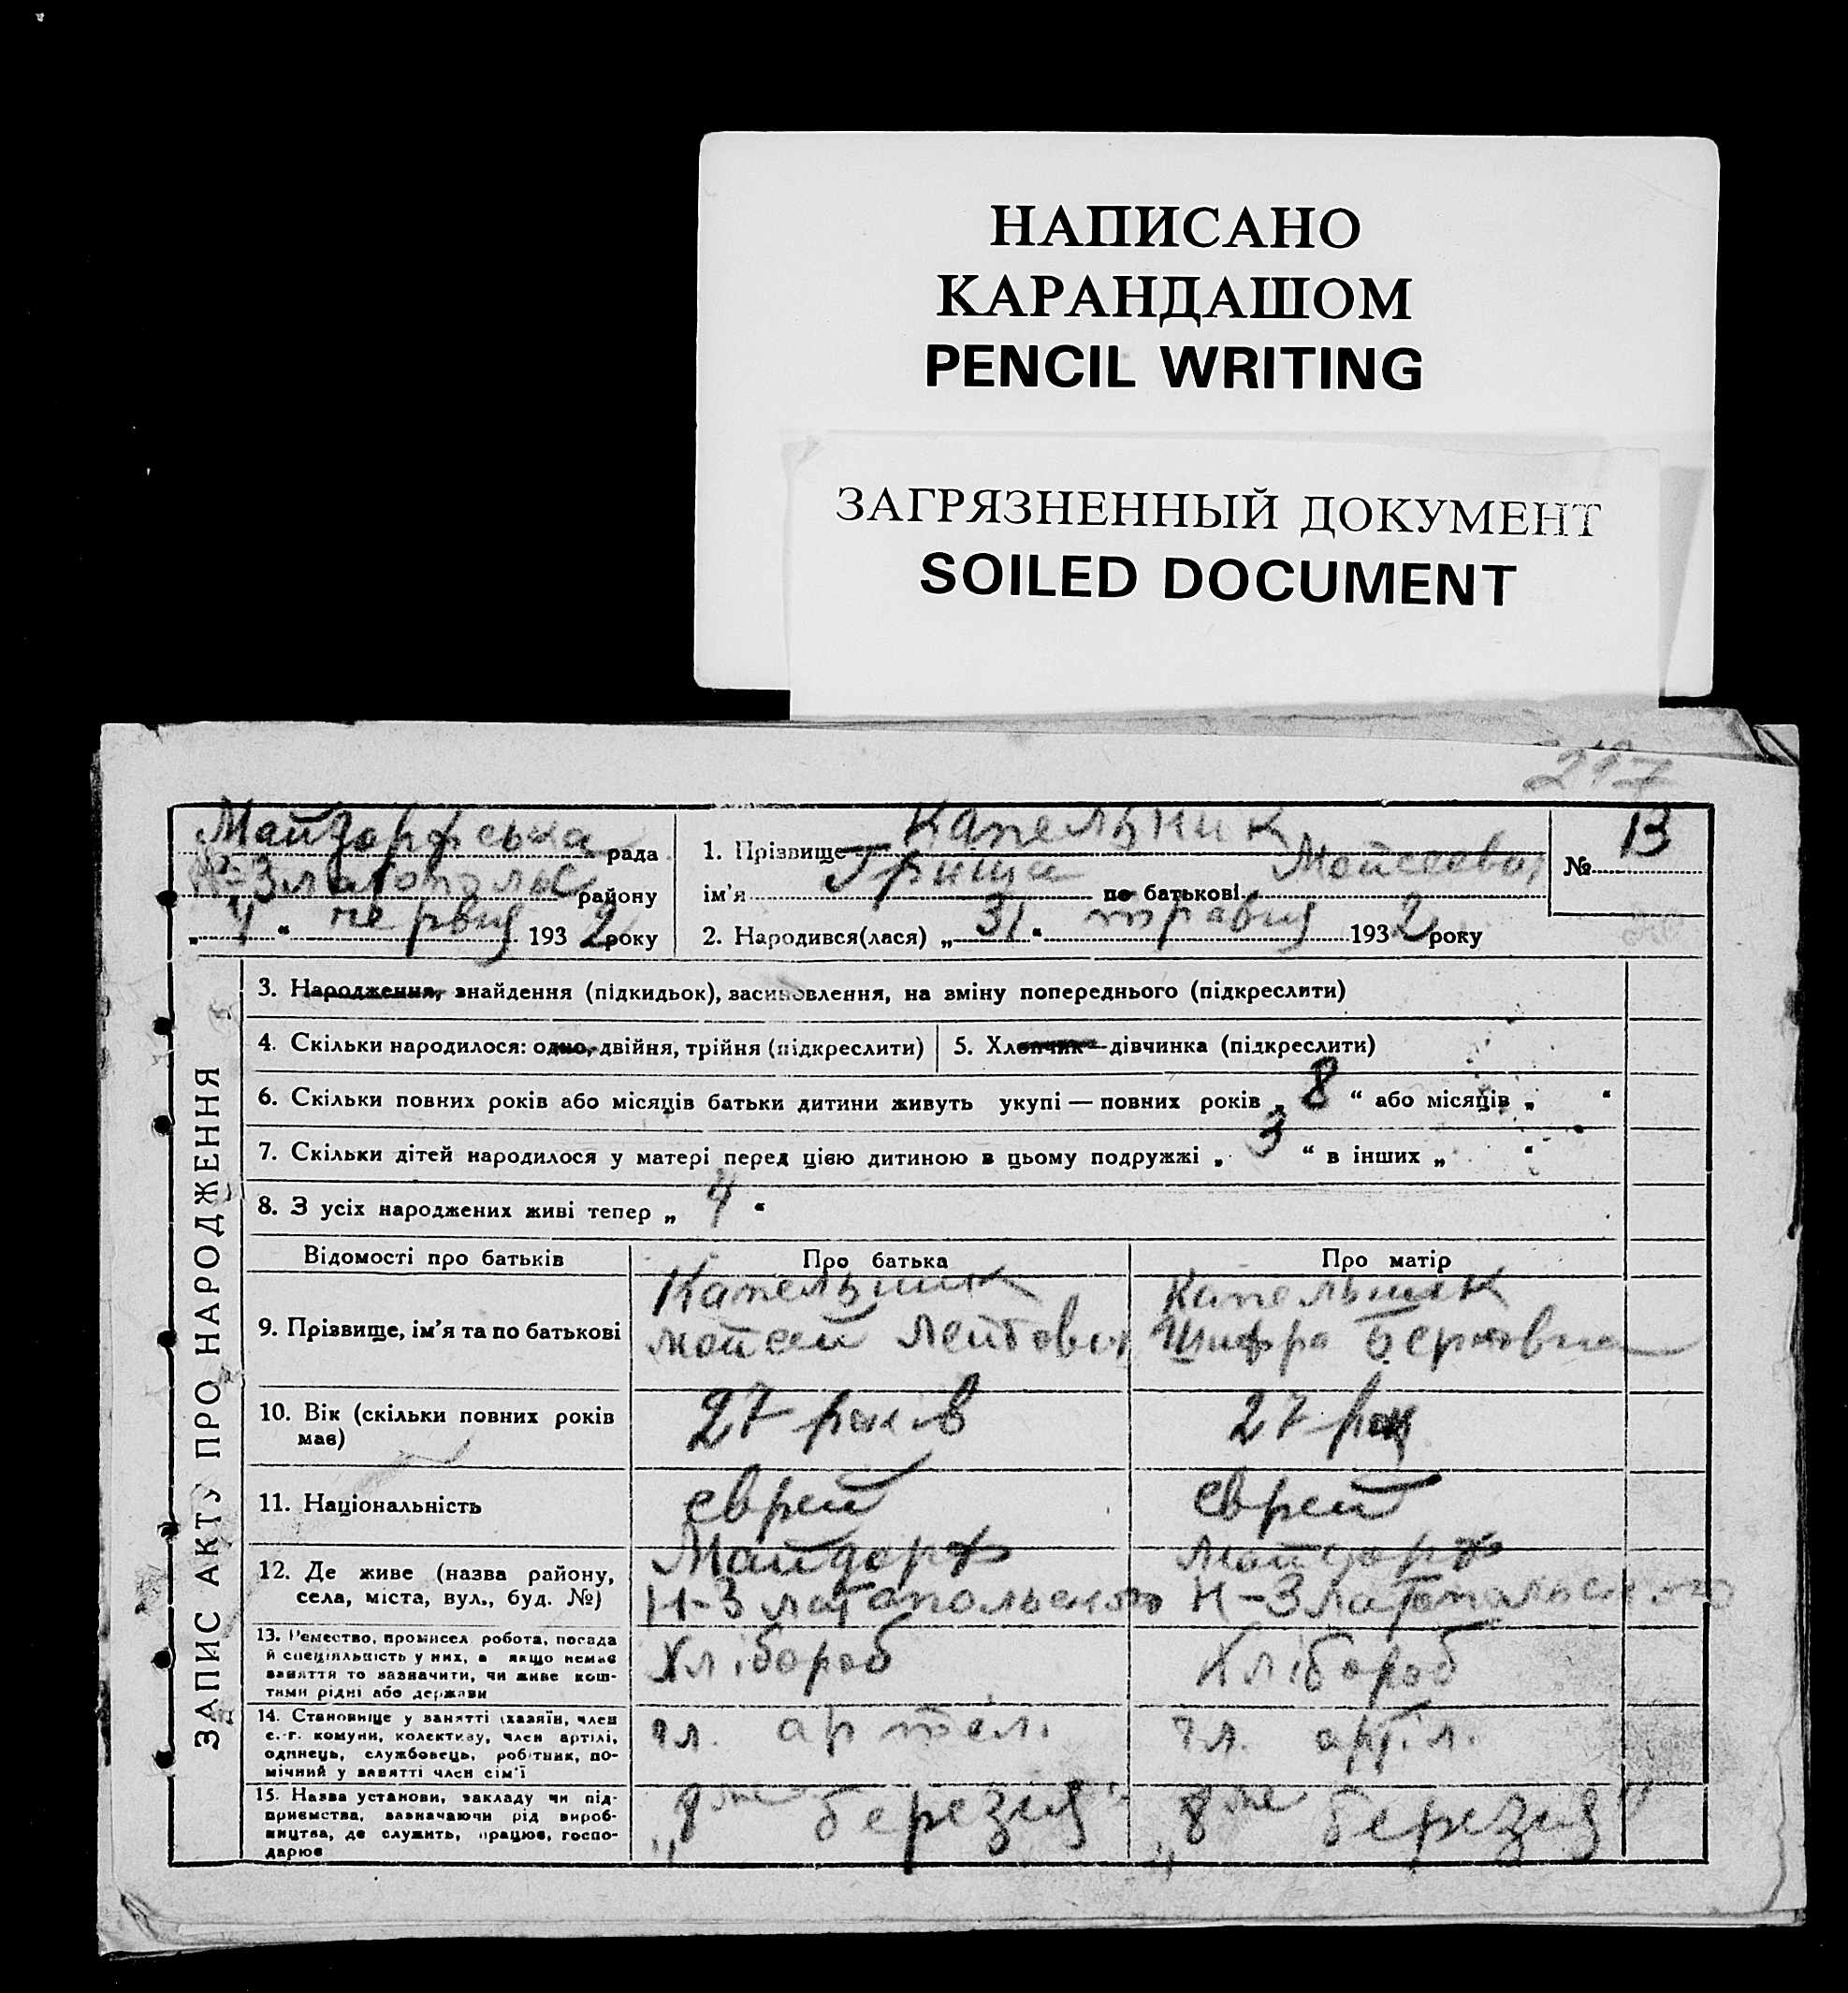 НАПИСАНО
КАРАНДАШОМ
PENCIL WRITING
ЗАГРЯЗНЕННЫЙ ДОКУМЕНТ
SOILED DOCUMENT
217
Майдорфська рада
Златопольс району
„ 4 “ червня 1932 року
1. Прізвище Капельник
ім’я Гриша по батькові Мойсеевич
2. Народився(лася) „ 31 “ травня 1932 року
№ 13
ЗАПИС АКТУ ПРО НАРОДЖЕННЯ
3. Народження, знайдення (підкидьок), засиновлення, на зміну попереднього (підкреслити)
4. Скільки народилося: одно, двійня, трійня (підкреслити)
5. Хлопчик—дівчинка (підкреслити)
6. Скільки повних років або місяців батьки дитини живуть укупі — повних років „ 8 “ або місяців „ “
7. Скільки дітей народилося у матері перед цією дитиною в цьому подружжі „ 3 “ в інших „ “
8. З усіх народжених живі тепер „ 4 “
Відомості про батьків Про батька Про матір
9. Прізвище, ім’я та по батькові
Капельник
Мойсей Лейбович
Капельник
Цифра Берковна
10. Вік (скільки повних років
має)
27 років
27 рок
11. Національність
еврей
еврей
12. Де живе (назва району,
села, міста, вул., буд. №)
Майдорф
Н-Златопольского
Майдорф
Н-Златопольского
13. Ремество, промисел робота, посада
й спеціяльність у них, а якщо немає
заняття то зазначити, чи живе кош-
тами рідні або держави
Хлібороб
Хлібороб
14. Становище у занятті (хазяїн, член
с.-г. комуни, колективу, член артілі,
одинець, службовець, робітник, по-
мічний у занятті член сім’ї
чл. артел.
чл. арт.л.
15. Назва установи, закладу чи під-
приємства, зазначаючи рід вироб-
ництва, де служить, працює, госпо-
дарює
„8 березня“
„8 березня“